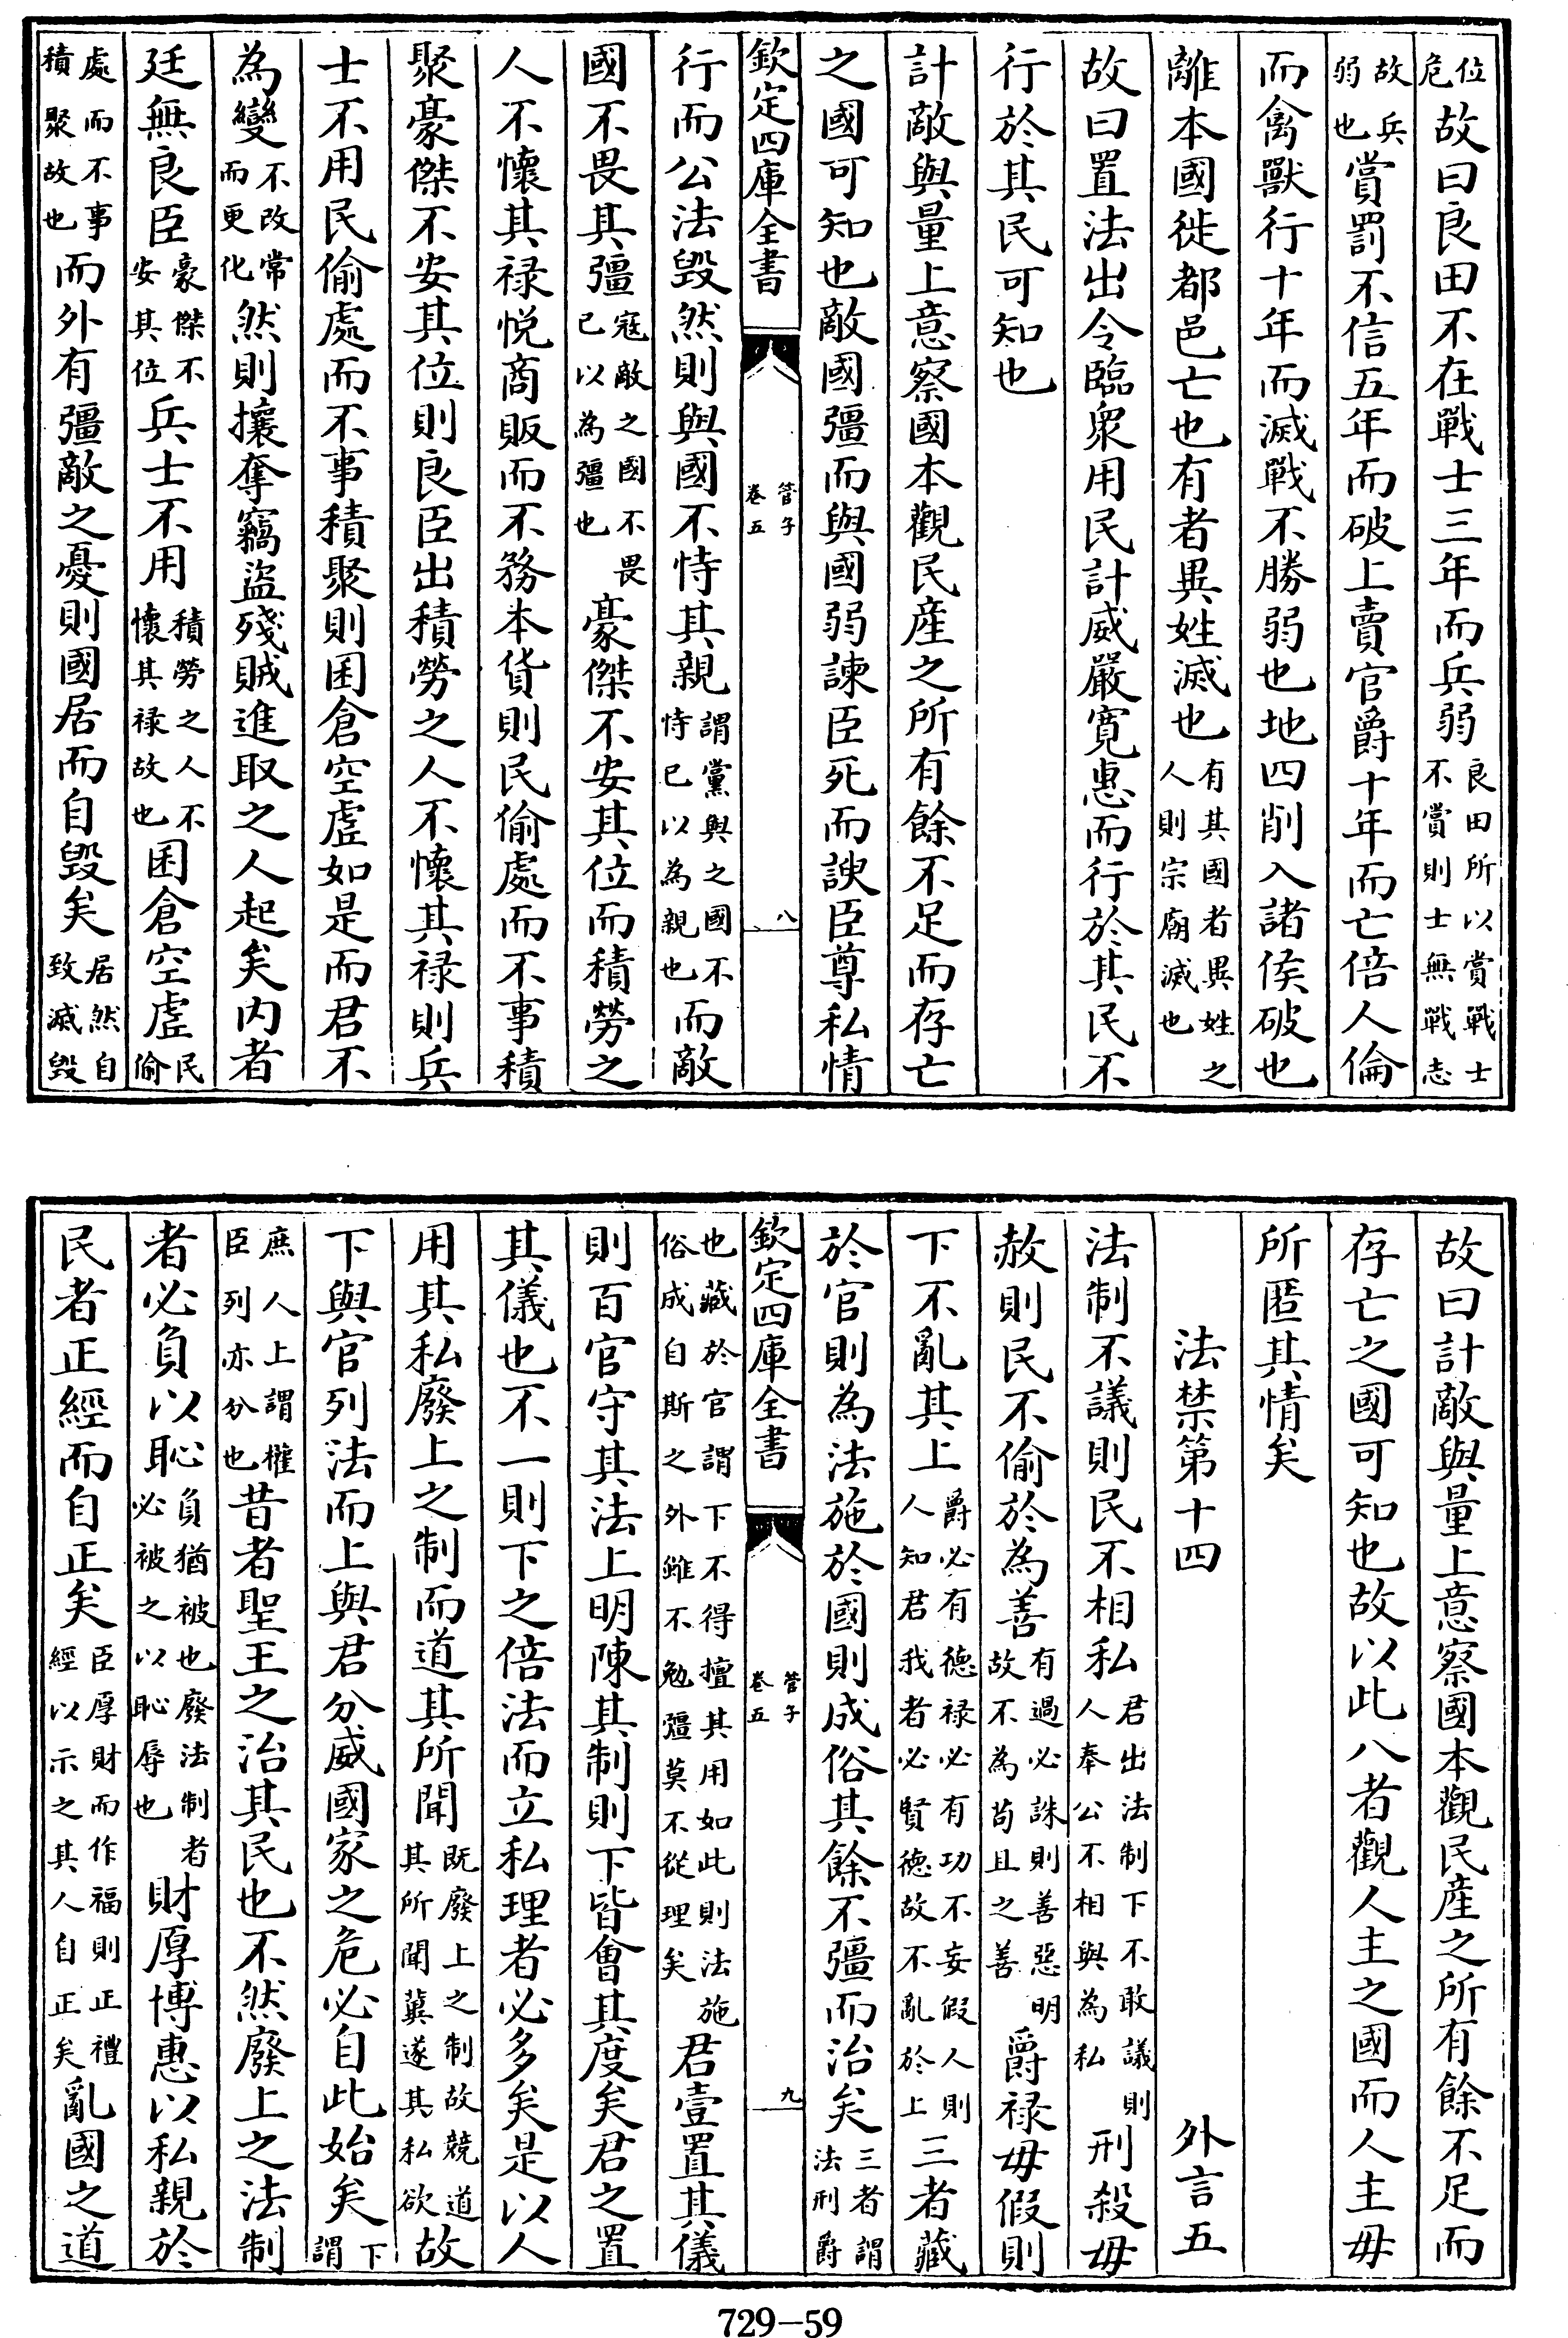 位危故曰良田不在戰士三年而兵弱良田所以賞戰士不賞則士無戰志
故兵弱也賞罰不信五年而破上賣官爵十年而亡倍人倫
而禽獸行十年而滅戰不勝弱也地四削入諸侯破也
離本國徙都邑亡也有者異姓滅也有其國者異姓之人則宗廟滅也
故曰置法出令臨衆用民計威嚴寛惠而行於其民不
行於其民可知也
計敵與量上意察國本觀民産之所有餘不足而存亡
之國可知也敵國彊而與國弱諫臣死而諛臣尊私情
欽定四庫全書 管子卷五 八
行而公法毀然則與國不恃其親謂黨與之國不恃已以為親也而敵
國不畏其彊寇敵之國不畏已以為彊也豪傑不安其位而積勞之
人不懷其禄悅商販而不務本貨則民偷處而不事積
聚豪傑不安其位則良臣出積勞之人不懷其禄則兵
士不用民偷處而不事積聚則囷倉空虛如是而君不
為變不改常而更化然則攘奪竊盜殘賊進取之人起矣内者
廷無良臣豪傑不安其位兵士不用積勞之人不懷其禄故也囷倉空虛民偷
處而不事積聚故也而外有彊敵之憂則國居而自毀矣居然自致滅毀
故曰計敵與量上意察國本觀民産之所有餘不足而
存亡之國可知也故以此八者觀人主之國而人主毋
所匿其情矣
法禁第十四 外言五
法制不議則民不相私君出法制下不敢議則人奉公不相與為私刑殺毋
赦則民不偷於為善有過必誅則善惡明故不為苟且之善爵禄毋假則
下不亂其上爵必有德禄必有功不妄假人則人知君我者必賢德故不亂於上三者藏
於官則為法施於國則成俗其餘不彊而治矣三者謂法刑爵
欽定四庫全書 管子卷五 九
也藏於官謂下不得擅其用如此則法施俗成自斯之外雖不勉彊莫不從理矣君壹置其儀
則百官守其法上明陳其制則下皆會其度矣君之置
其儀也不一則下之倍法而立私理者必多矣是以人
用其私廢上之制而道其所聞既廢上之制故競道其所聞冀遂其私欲故
下與官列法而上與君分威國家之危必自此始矣下謂
庶人上謂權臣列亦分也昔者聖王之治其民也不然廢上之法制
者必負以恥負猶被也廢法制者必被之以恥辱也財厚博惠以私親於
民者正經而自正矣臣厚財而作福則正禮經以示之其人自正矣亂國之道
729—59